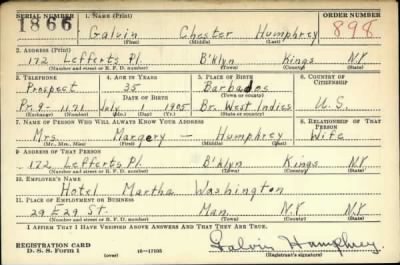 SERIAL NUMBER 1. NAME (Print) ORDER NUMBER
1866 Galvin Chester Humphrey 898
(First) (Middle) (Last)
2. ADDRESS (Print)
172 Lefferts Pl. B'klyn Kings N.Y.
(Number and street or R. F. D. number) (Town) (County) (State)
3. TELEPHONE 4. AGE IN YEARS 5. PLACE OF BIRTH 6. COUNTRY OF CITIZENSHIP
Prospect 35 Barbados
DATE OF BIRTH (Town or county)
Pr. 9-1171 July 1 1905 Br. West Indies U.S.
(Exchange) (Number) (Mo.) (Day) (Yr.) (State or country)
7. NAME OF PERSON WHO WILL ALWAYS KNOW YOUR ADDRESS 8. RELATIONSHIP OF THAT PERSON
Mrs. Margery — Humphrey Wife
(Mr., Mrs., Miss) (First) (Middle) (Last)
9. ADDRESS OF THAT PERSON
172 Lefferts Pl. B'klyn Kings N.Y.
(Number and street or R. F. D. number) (Town) (County) (State)
10. EMPLOYER'S NAME
Hotel Martha Washington
11. PLACE OF EMPLOYMENT OR BUSINESS
29 E 29 St. Man. N.Y. N.Y.
(Number and street or R. F. D. number) (Town) (County) (State)
I AFFIRM THAT I HAVE VERIFIED ABOVE ANSWERS AND THAT THEY ARE TRUE.
REGISTRATION CARD
D. S. S. Form 1 (over) 16-17105 Galvin Humphrey
(Registrant's signature)